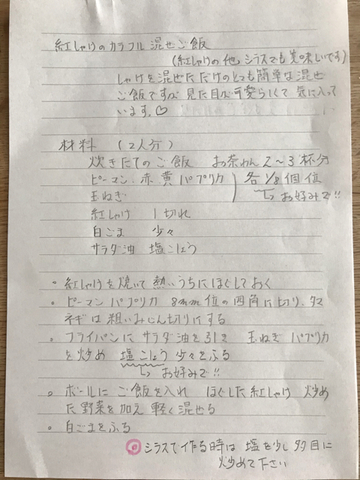 紅しゃけのカラフル混ぜご飯
(紅しゃけの他 シラスでも美味しいです)
しゃけを混ぜただけのとても簡単な混ぜ
ご飯ですが 見た目が可愛らしくて 気に入って
います♡
材料 (2人分)
炊きたてのご飯 お茶わん 2~3杯分
ピーマン・赤黄パプリカ 各1/8個位
玉ねぎ お好みで!!
紅しゃけ 1切れ
白ごま 少々
サラダ油 塩こしょう
• 紅しゃけを焼いて 熱いうちにほぐしておく
• ピーマン パプリカ 8mm位の四角に切り、タマ
ネギは粗いみじん切りにする
• フライパンに サラダ油を引き 玉ねぎ パプリカ
を炒め 塩こしょう 少々をふる
お好みで!!
• ボールに ご飯を入れ ほぐした紅しゃけ 炒め
た野菜を加え 軽く混ぜる
• 白ごまをふる
◎シラスで作る時は 塩を少し多目に
炒めて下さい